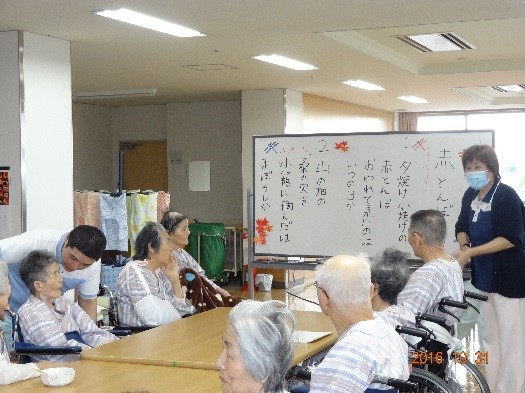 赤とんぼ
夕焼け小焼けの
赤とんぼ
おわれて見たのは
いつの日か
2 山の畑の
桑の実を
小籠に摘んだは
まぼろしか
2016 10 31